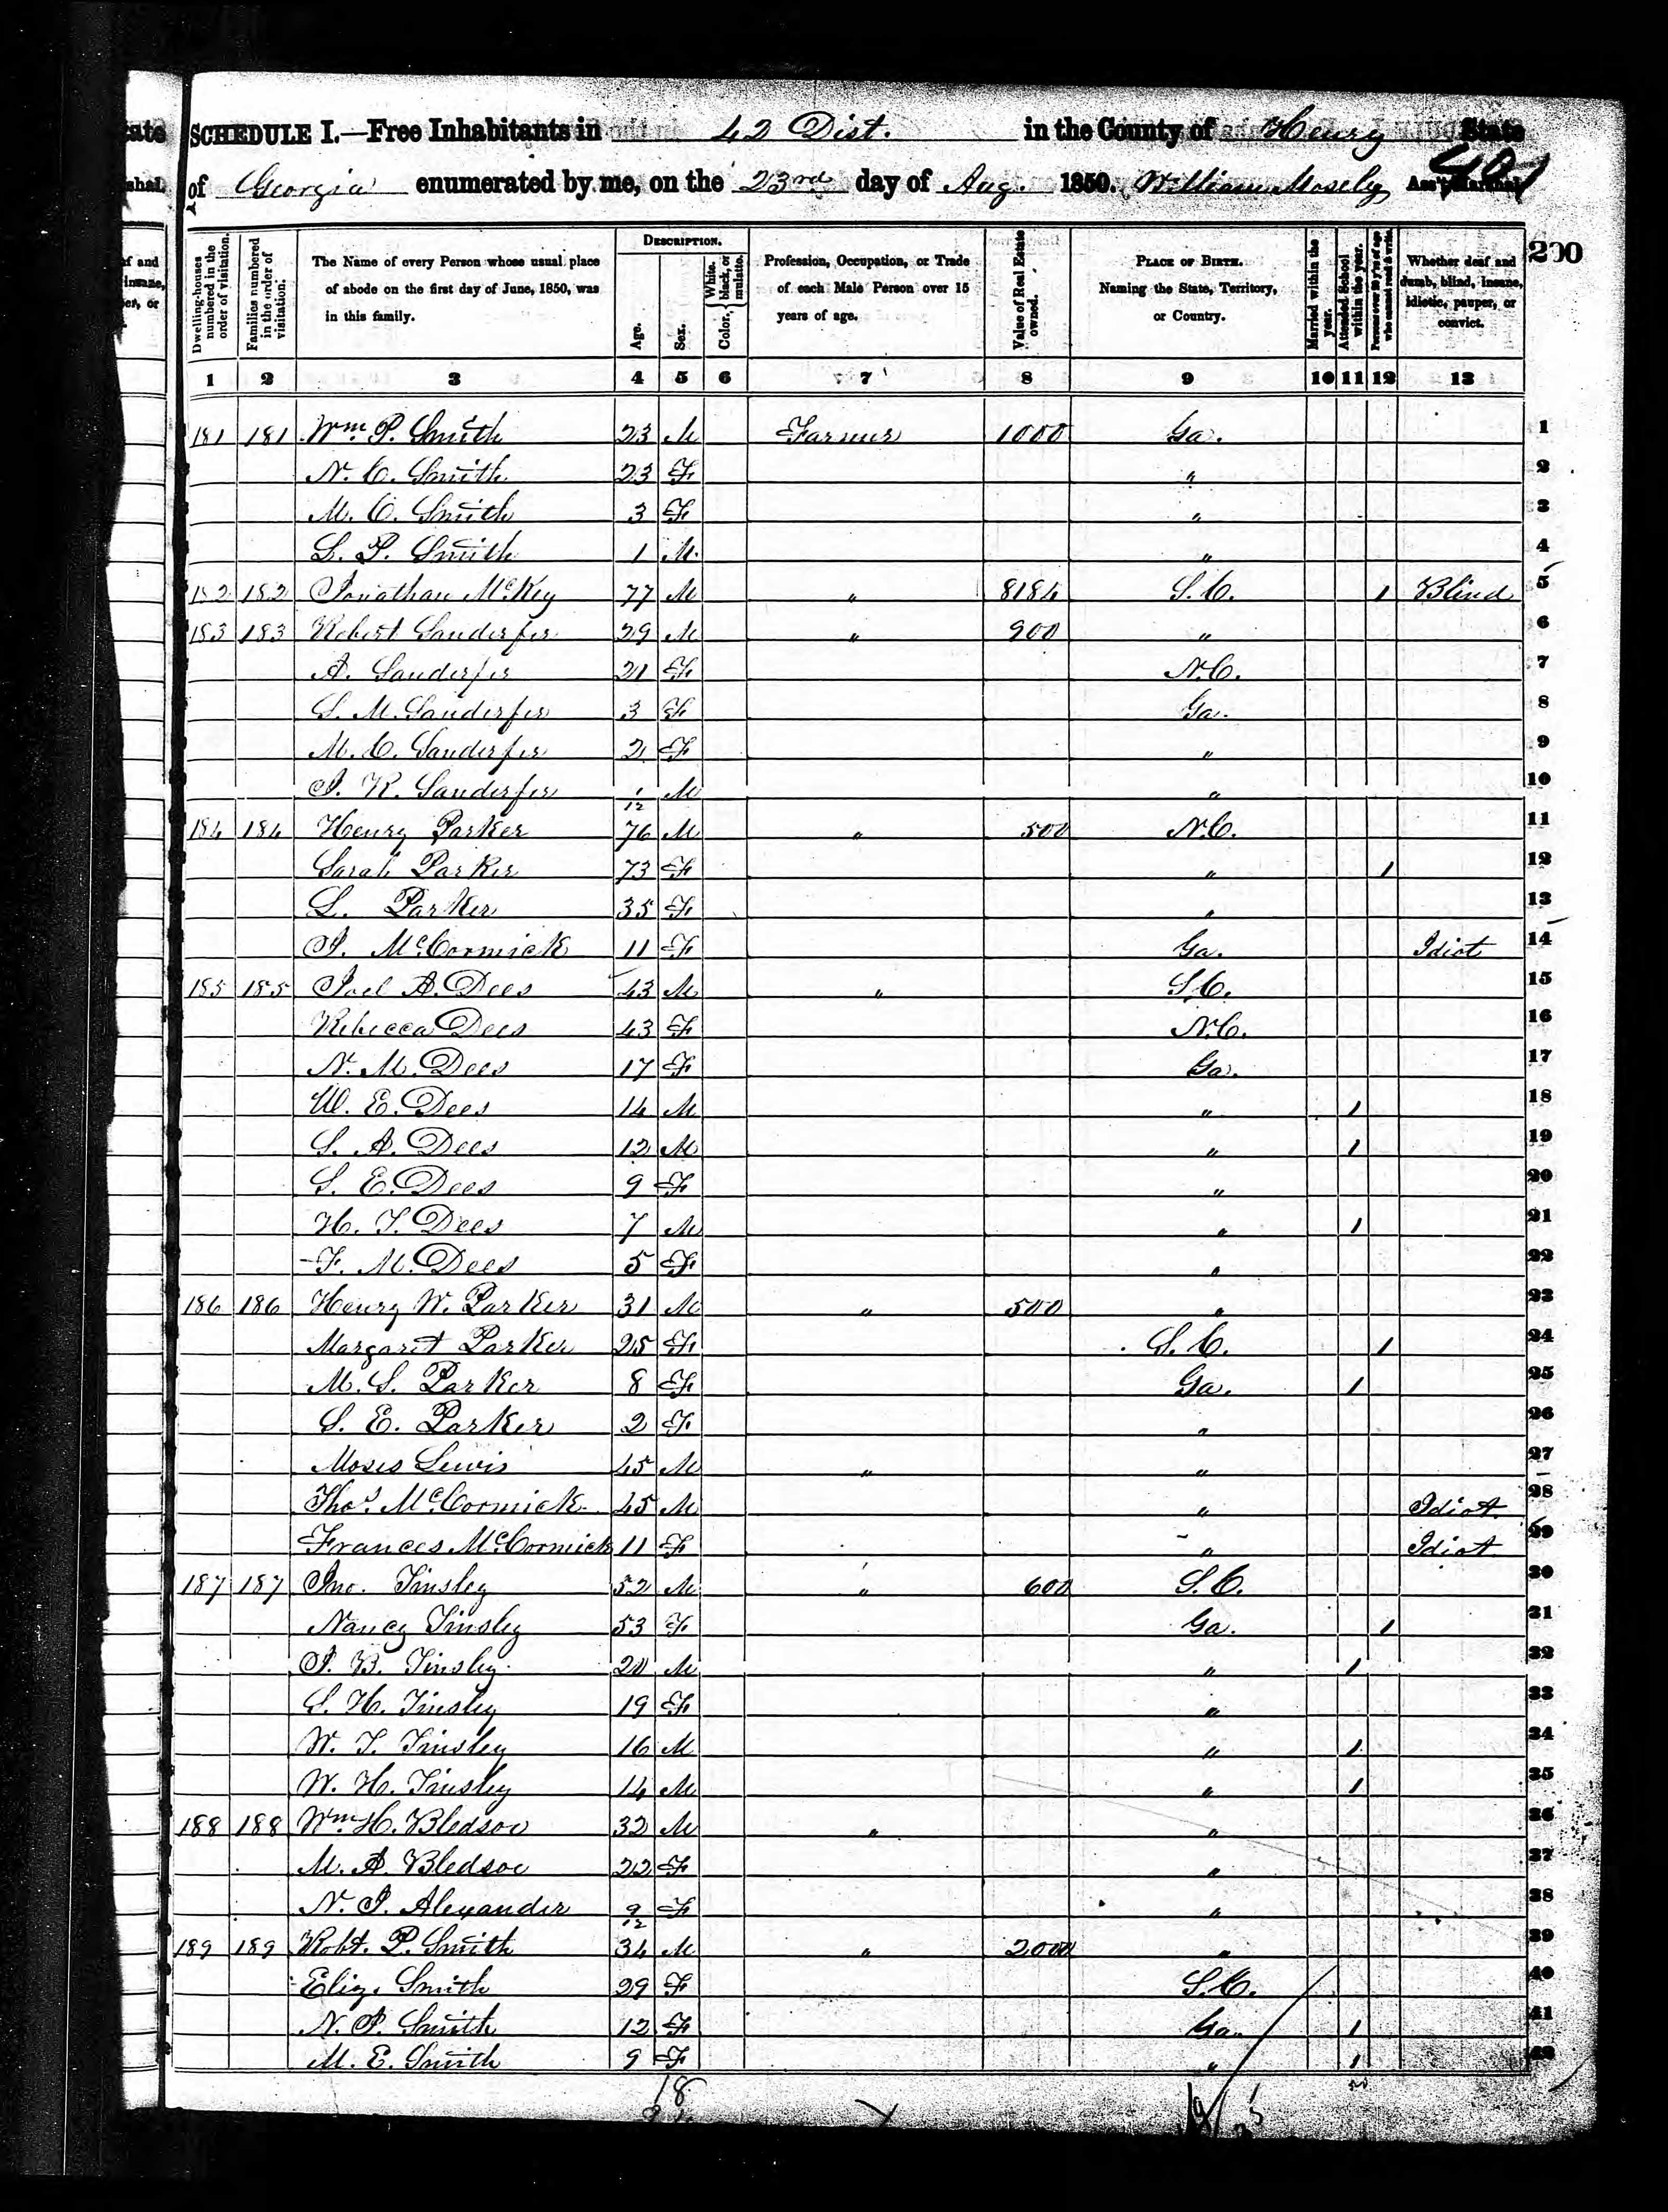 tate
shal.
ef and
insane,
er, or
SCHEDULE I.—Free Inhabitants in 42 Dist. in the County of Henry State
of Georgia enumerated by me, on the 23rd day of Aug. 1850. William Mosely Ass't Marshal
401
200
Dwelling-houses numbered in the order of visitation.
Families numbered in the order of visitation.
The Name of every Person whose usual place of abode on the first day of June, 1850, was in this family.
DESCRIPTION.
Age.
Sex.
Color, { White, black, or mulatto.
Profession, Occupation, or Trade of each Male Person over 15 years of age.
Value of Real Estate owned.
PLACE OF BIRTH. Naming the State, Territory, or Country.
Married within the year.
Attended School within the year.
Persons over 20 y'rs of age who cannot read & write.
Whether deaf and dumb, blind, insane, idiotic, pauper, or convict.
1 2 3 4 5 6 7 8 9 10 11 12 13
181 181 Wm P. Smith 23 M Farmer 1000 Ga. 1
N. C. Smith 23 F " 2
M. C. Smith 3 F " 3
L. P. Smith 1 M " 4
182 182 Jonathan McKey 77 M " 8184 S.C. 1 Blind 5
183 183 Robert Sanderfer 29 M " 900 " 6
A. Sanderfer 21 F N.C. 7
S. M. Sanderfer 3 F Ga. 8
M. C. Sanderfer 2 F " 9
J. R. Sanderfer 1/12 M " 10
184 184 Henry Parker 76 M " 500 N.C. 11
Sarah Parker 73 F " 1 12
L. Parker 35 F " 13
J. McCormick 11 F Ga. Idiot 14
185 185 Joel A. Dees 43 M " S.C. 15
Rebecca Dees 43 F N.C. 16
N. M. Dees 17 F Ga. 17
W. E. Dees 14 M " 1 18
S. A. Dees 12 M " 1 19
S. E. Dees 9 F " 20
H. T. Dees 7 M " 1 21
F. M. Dees 5 F " 22
186 186 Henry W. Parker 31 M " 500 " 23
Margaret Parker 25 F S.C. 1 24
M. S. Parker 8 F Ga. 1 25
S. E. Parker 2 F " 26
Moses Lewis 45 M " " 27
Thos McCormick 45 M " Idiot 28
Frances McCormick 11 F " Idiot 29
187 187 Jno. Tinsley 52 M " 600 S.C. 30
Nancy Tinsley 53 F Ga. 1 31
J. B. Tinsley 20 M " 1 32
S. H. Tinsley 19 F " 33
W. T. Tinsley 16 M " 1 34
W. H. Tinsley 14 M " 1 35
188 188 Wm H. Bledsoe 32 M " " 36
M. A. Bledsoe 22 F " 37
N. J. Alexander 9/12 F " 38
189 189 Robt. P. Smith 34 M " 2000 " 39
Eliz. Smith 29 F S.C. 40
N. J. Smith 12 F Ga. 1 41
M. E. Smith 9 F " 1 42
18